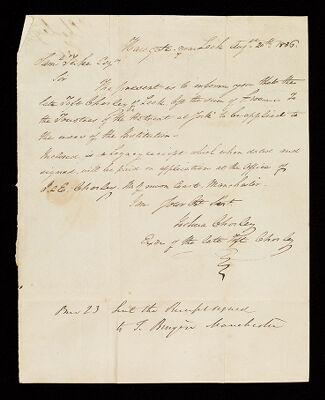 Haregate near Leek Aug 20th 1836.
Saml Tuke Esqr
Sir
The present is to inform you that the
late Toft Chorley of Leek left the sum of
the Trustees of the Retreat at York to be applied to
the uses of the Institution.
Inclosed is a legacy receipt which when dated and
signed, will be paid on application at the Office of
Chorley, Manchester.
I am Your Obt Servt
Joshua Chorley
Exor of the late Toft Chorley
23 sent the Receipt signed
to T. Manchester